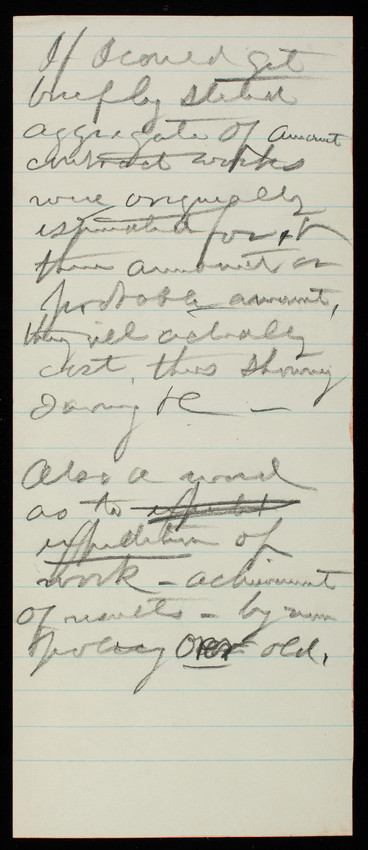 If I could get
briefly stated
aggregate of amount
contract works
were originally
estimated for, &
then amount or
probable amount,
they will actually
cost, thus showing
saving &c —
Also a word
as to
expedition of
work - achievement
of results - by new
policy over old.